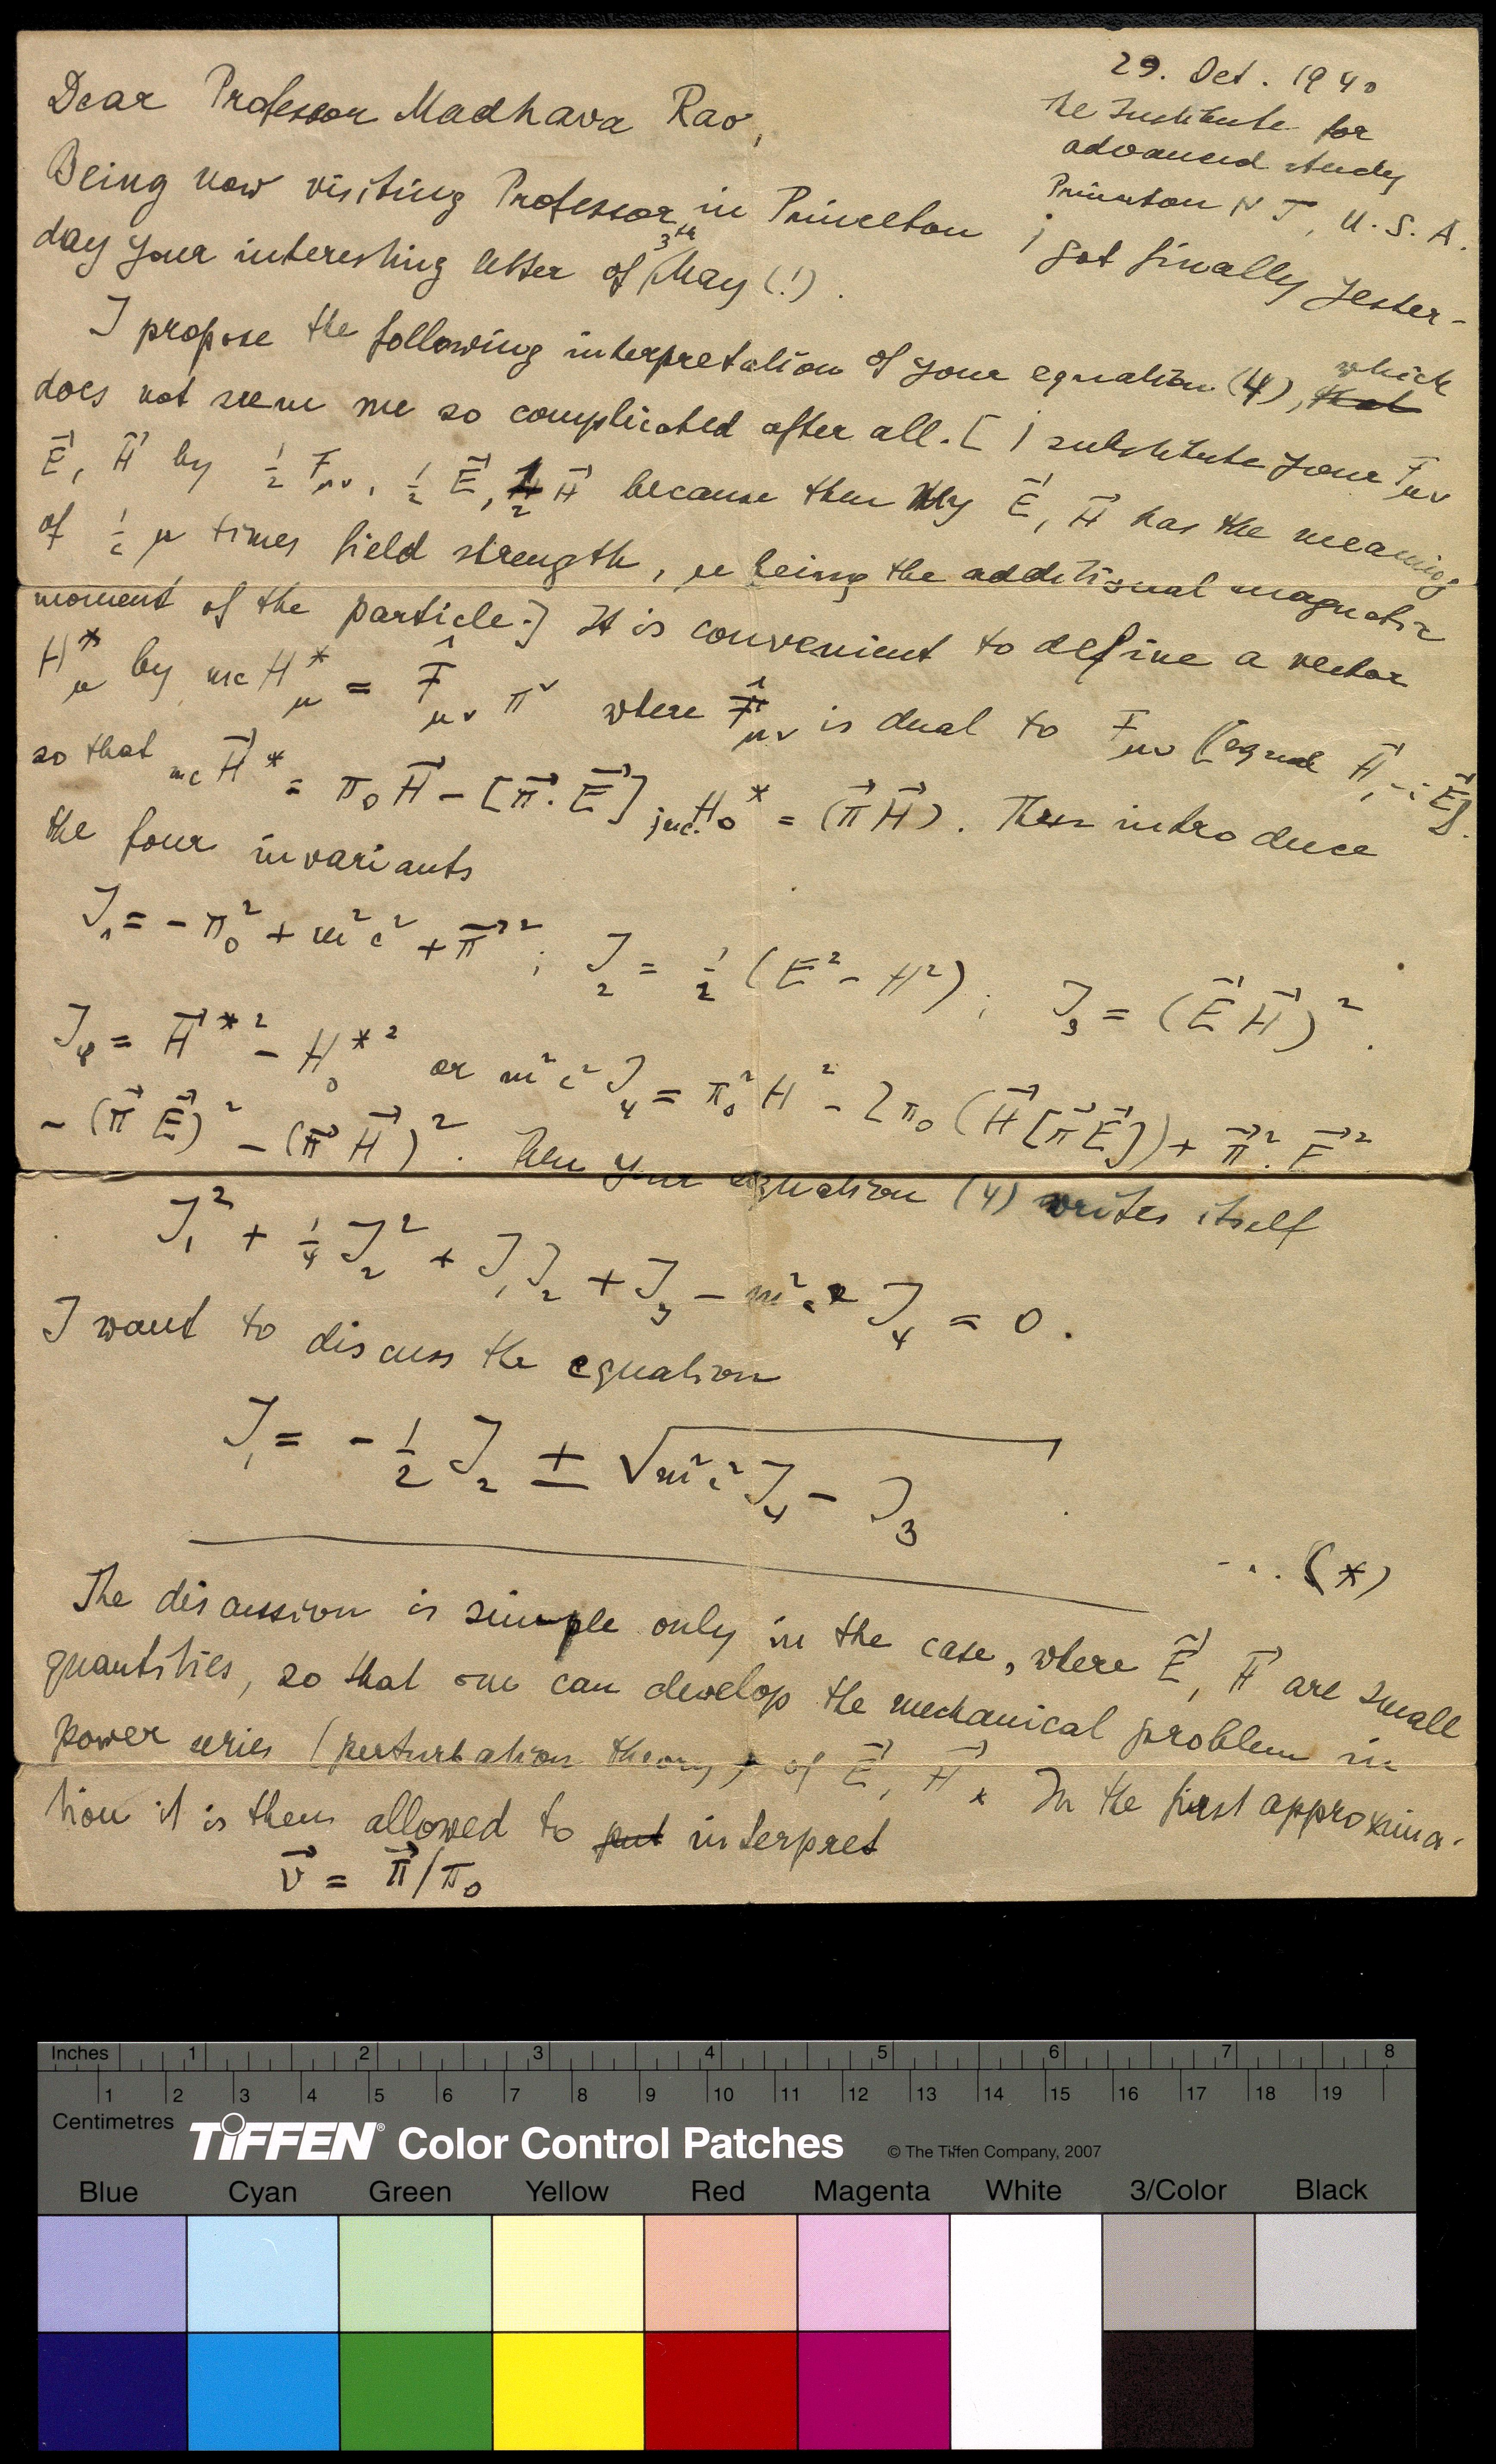 29. Oct. 1940
The Institute for
advanced study
Princeton N J, U.S.A.
Dear Professor Madhava Rao,
Being now visiting Professor in Princeton i got finally yester-
day your interesting letter of 3th May (!).
I propose the following interpretation of your equation (4), which
does not seem me so complicated after all. [ I substitute your Fμν
E⃗, H⃗ by ½ Fμν, ½ E⃗, ½ H⃗ because then my E⃗, H⃗ has the meaning
of 1/c μ times field strength, μ being the additional magnetic
moment of the particle.] It is convenient to define a vector
H*μ by mc H*μ = F̂μν πν where F̂μν is dual to Fμν (equal H⃗, -iE⃗).
so that mc H⃗* = π₀H⃗ - [π⃗·E⃗] ; mc H₀* = (π⃗H⃗). Then introduce
the four invariants
J₁ = -π₀² + m²c² + π⃗² ; J₂ = ½ (E² - H²) ; J₃ = (E⃗H⃗)².
J₄ = H⃗*² - H₀*² or m²c²J₄ = π₀²H² - 2π₀(H⃗[π⃗E⃗]) + π⃗²·E⃗²
- (π⃗E⃗)² - (π⃗H⃗)². Then your equation (4) writes itself
J₁² + ¼ J₂² + J₁J₂ + J₃ - m²c² J₄ = 0.
I want to discuss the equation
J₁ = - ½ J₂ ± √(m²c²J₄ - J₃)
... (*)
The discussion is simple only in the case, where E⃗, H⃗ are small
quantities, so that one can develop the mechanical problem in
power series (perturbation theory) of E⃗, H⃗. In the first approxima-
tion it is then allowed to interpret
v⃗ = π⃗/π₀
Inches 1 2 3 4 5 6 7 8
1 2 3 4 5 6 7 8 9 10 11 12 13 14 15 16 17 18 19
Centimetres
TIFFEN® Color Control Patches © The Tiffen Company, 2007
Blue Cyan Green Yellow Red Magenta White 3/Color Black